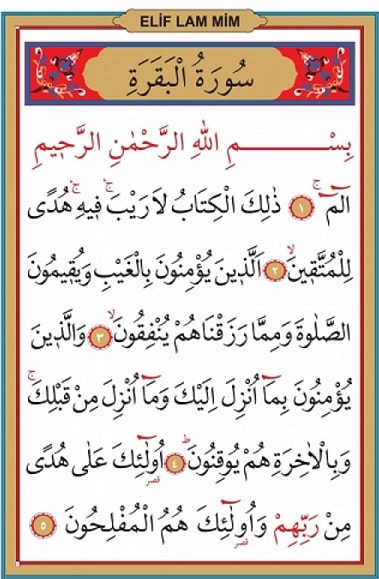 ELİF LAM MİM
سُورَةُ الْبَقَرَةِ
بِسْمِ اللهِ الرَّحْمٰنِ الرَّحٖيمِ
الٓمٓ ۚ ﴿١﴾ ذٰلِكَ الْكِتَابُ لَا رَيْبَ ۚ فٖيهِ ۚ هُدًى
لِلْمُتَّقٖينَ ۙ ﴿٢﴾ اَلَّذٖينَ يُؤْمِنُونَ بِالْغَيْبِ وَيُقٖيمُونَ
الصَّلٰوةَ وَمِمَّا رَزَقْنَاهُمْ يُنْفِقُونَ ۙ ﴿٣﴾ وَالَّذٖينَ
يُؤْمِنُونَ بِمَٓا اُنْزِلَ اِلَيْكَ وَمَٓا اُنْزِلَ مِنْ قَبْلِكَ ۚ
وَبِالْاٰخِرَةِ هُمْ يُوقِنُونَ ۜ ﴿٤﴾ اُو۬لٰٓئِكَ عَلٰى هُدًى
قصر
مِنْ رَبِّهِمْ وَاُو۬لٰٓئِكَ هُمُ الْمُفْلِحُونَ ﴿٥﴾
قصر